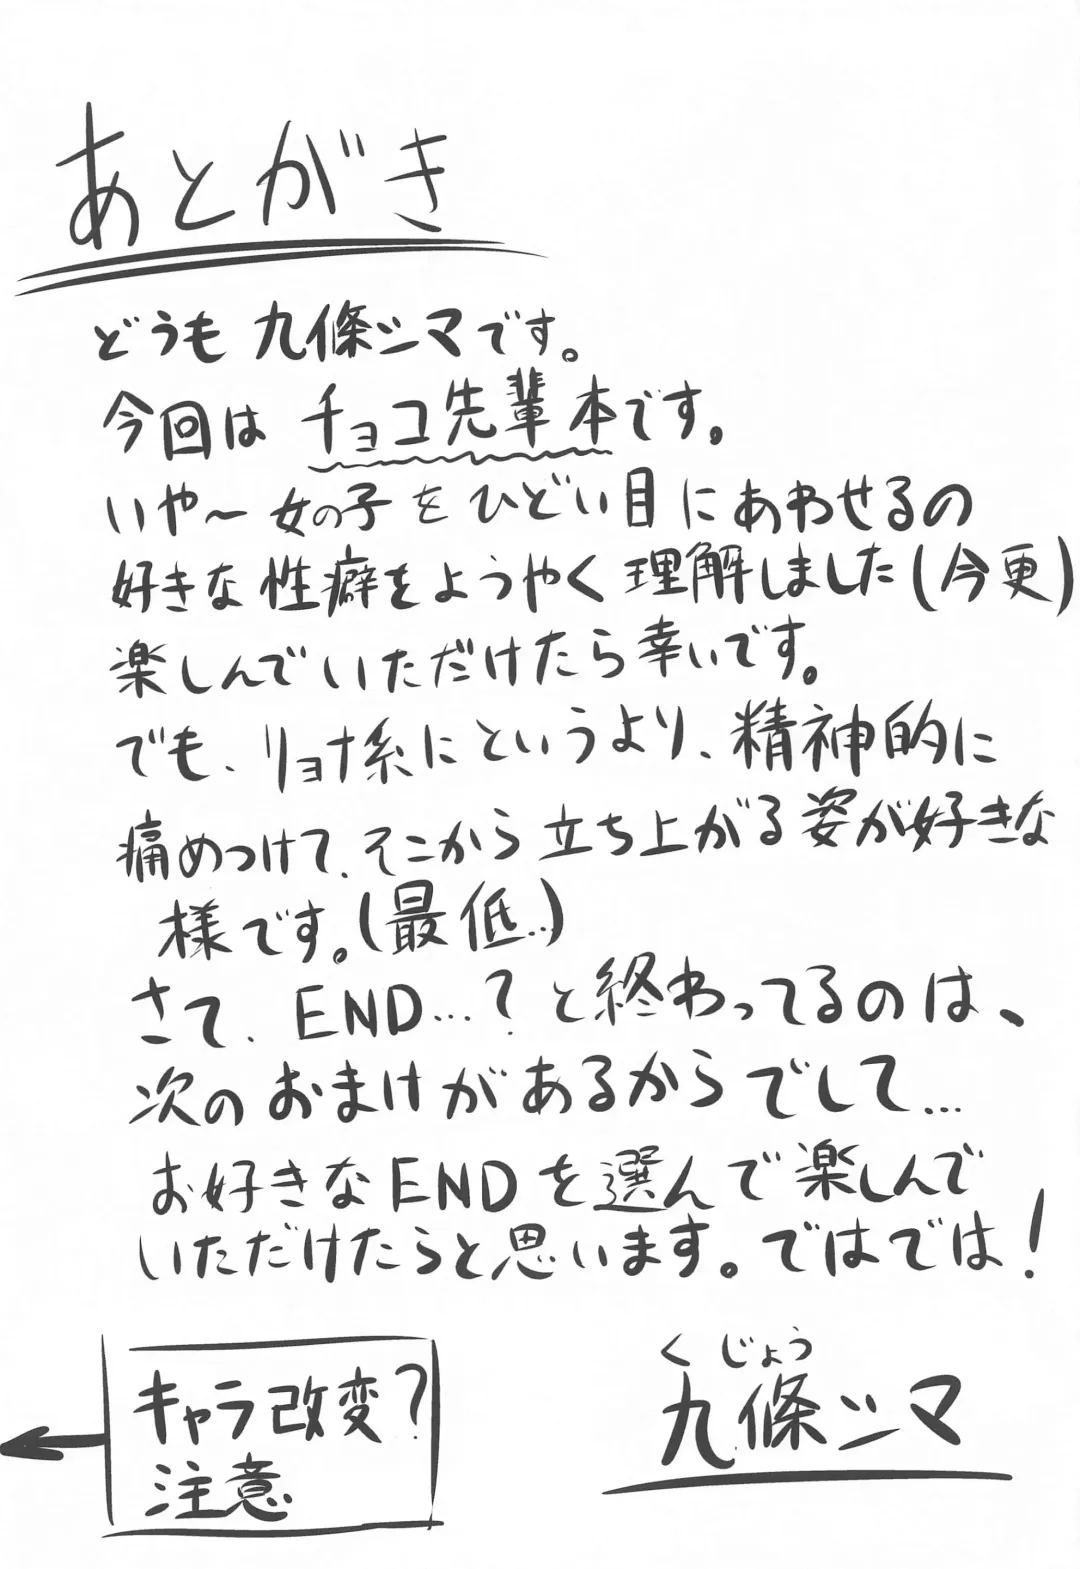 あとがき
どうも 九條シマです。
今回は チョコ先輩本です。
いや〜女の子をひどい目にあわせるの
好きな性癖をようやく理解しました(今更)
楽しんでいただけたら幸いです。
でも、リョナ系にというより、精神的に
痛めつけて、そこから立ち上がる姿が好きな
様です。(最低..)
さて、END…?と終わってるのは、
次のおまけがあるからでして…
お好きなENDを選んで楽しんで
いただけたらと思います。ではでは!
キャラ改変?
注意
くじょう
九條シマ